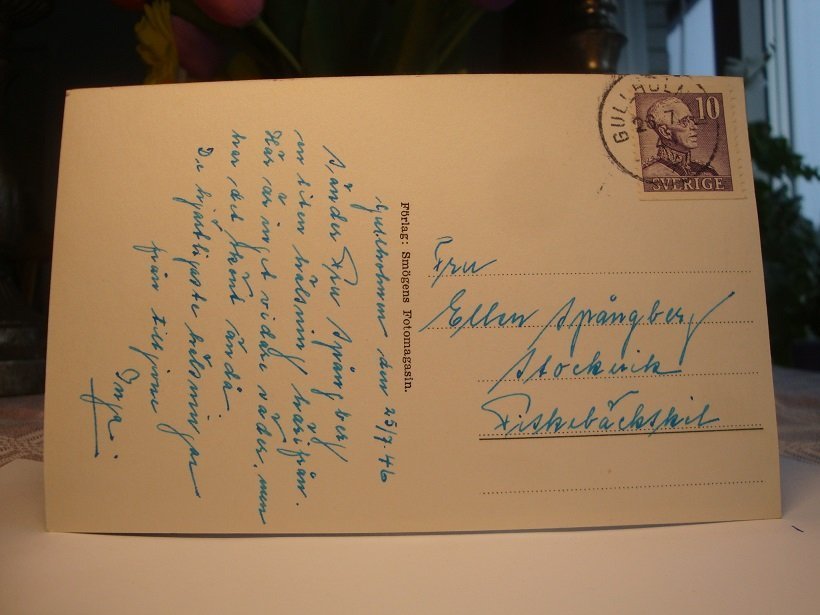 Gullholmen den 25/7 46
Sänder Fru Spångberg
en liten hälsning härifrån.
Här är inget vidare väder, men
här det skönt ändå
De hjärtligaste hälsningar
från
Inga.
Förlag: Smögens Fotomagasin.
GULLHOLM
10
SVERIGE
Fru
Ellen Spångberg
Stockvik
Fiskebäckskil